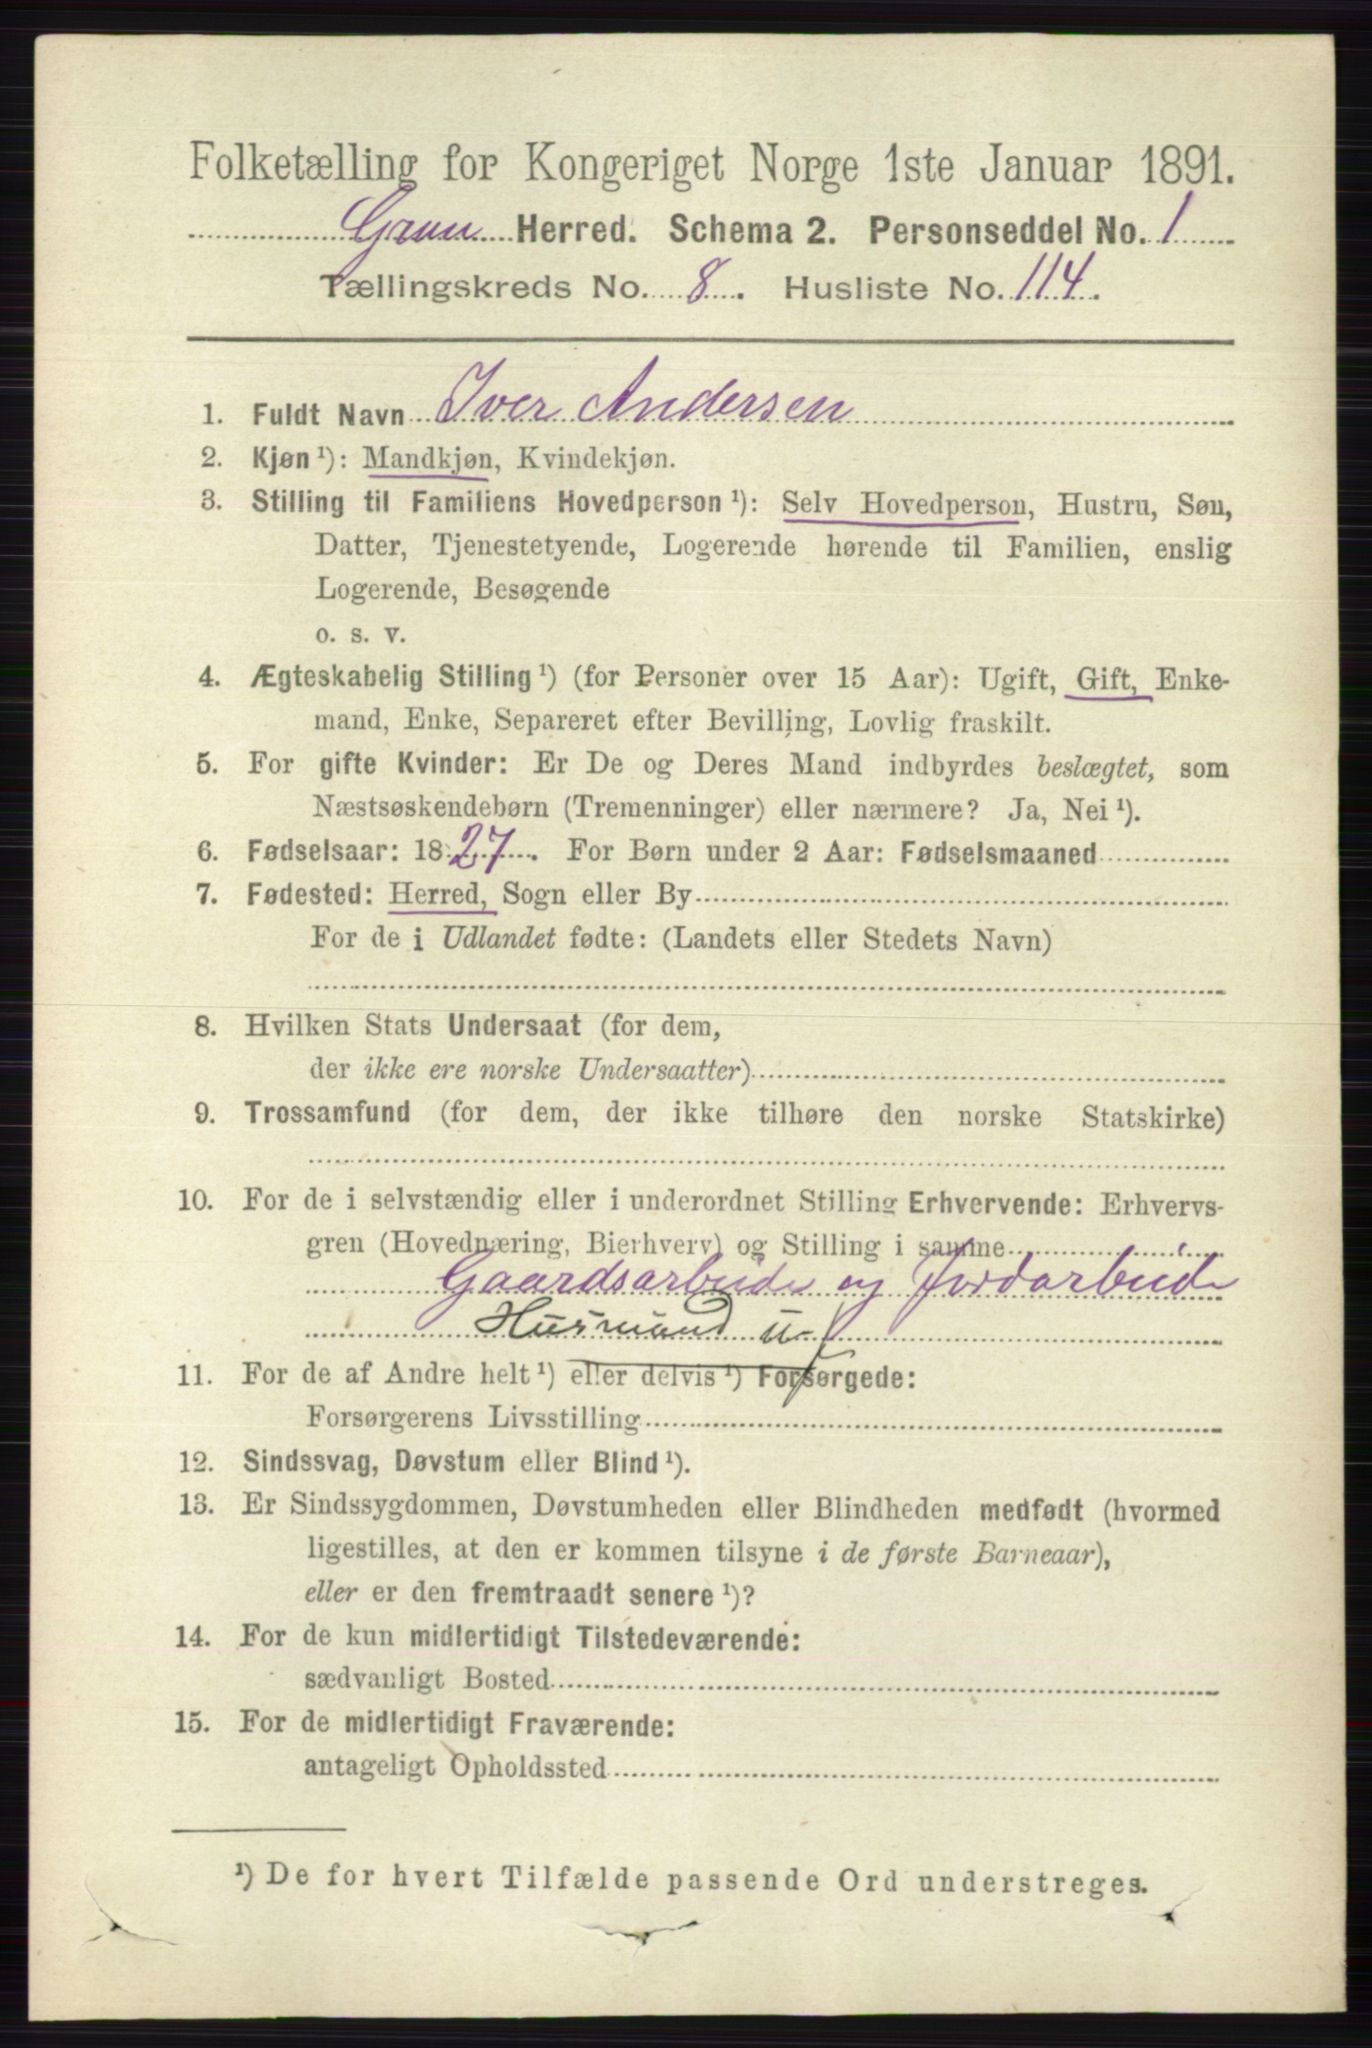 Folketælling for Kongeriget Norge 1ste Januar 1891.
Gran Herred. Schema 2. Personseddel No. 1
Tællingskreds No. 8. Husliste No. 114.
1. Fuldt Navn Iver Andersen
2. Kjøn ¹): Mandkjøn, Kvindekjøn.
3. Stilling til Familiens Hovedperson ¹): Selv Hovedperson, Hustru, Søn,
Datter, Tjenestetyende, Logerende hørende til Familien, enslig
Logerende, Besøgende
o. s. v.
4. Ægteskabelig Stilling ¹) (for Personer over 15 Aar): Ugift, Gift, Enke-
mand, Enke, Separeret efter Bevilling, Lovlig fraskilt.
5. For gifte Kvinder: Er De og Deres Mand indbyrdes beslægtet, som
Næstsøskendebørn (Tremenninger) eller nærmere? Ja, Nei ¹).
6. Fødselsaar: 1827. For Børn under 2 Aar: Fødselsmaaned
7. Fødested: Herred, Sogn eller By
For de i Udlandet fødte: (Landets eller Stedets Navn)
8. Hvilken Stats Undersaat (for dem,
der ikke ere norske Undersaatter)
9. Trossamfund (for dem, der ikke tilhøre den norske Statskirke)
10. For de i selvstændig eller i underordnet Stilling Erhvervende: Erhvervs-
gren (Hovednæring, Bierhverv) og Stilling i samme
Gaardsarbeide og Jordarbeide
Husmand u/
11. For de af Andre helt ¹) eller delvis ¹) Forsørgede:
Forsørgerens Livsstilling
12. Sindssvag, Døvstum eller Blind ¹).
13. Er Sindssygdommen, Døvstumheden eller Blindheden medfødt (hvormed
ligestilles, at den er kommen tilsyne i de første Barneaar),
eller er den fremtraadt senere ¹)?
14. For de kun midlertidigt Tilstedeværende:
sædvanligt Bosted
15. For de midlertidigt Fraværende:
antageligt Opholdssted
¹) De for hvert Tilfælde passende Ord understreges.